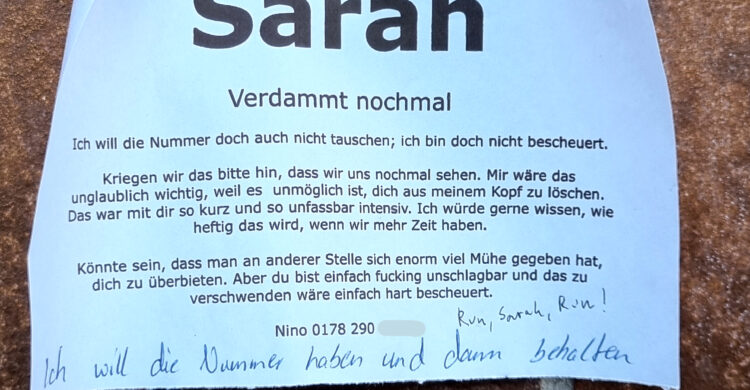 Sarah
Verdammt nochmal
Ich will die Nummer doch auch nicht tauschen; ich bin doch nicht bescheuert.
Kriegen wir das bitte hin, dass wir uns nochmal sehen. Mir wäre das
unglaublich wichtig, weil es unmöglich ist, dich aus meinem Kopf zu löschen.
Das war mit dir so kurz und so unfassbar intensiv. Ich würde gerne wissen, wie
heftig das wird, wenn wir mehr Zeit haben.
Könnte sein, dass man an anderer Stelle sich enorm viel Mühe gegeben hat,
dich zu überbieten. Aber du bist einfach fucking unschlagbar und das zu
verschwenden wäre einfach hart bescheuert.
Run, Sarah, Run!
Nino 0178 290
Ich will die Nummer haben und dann behalten